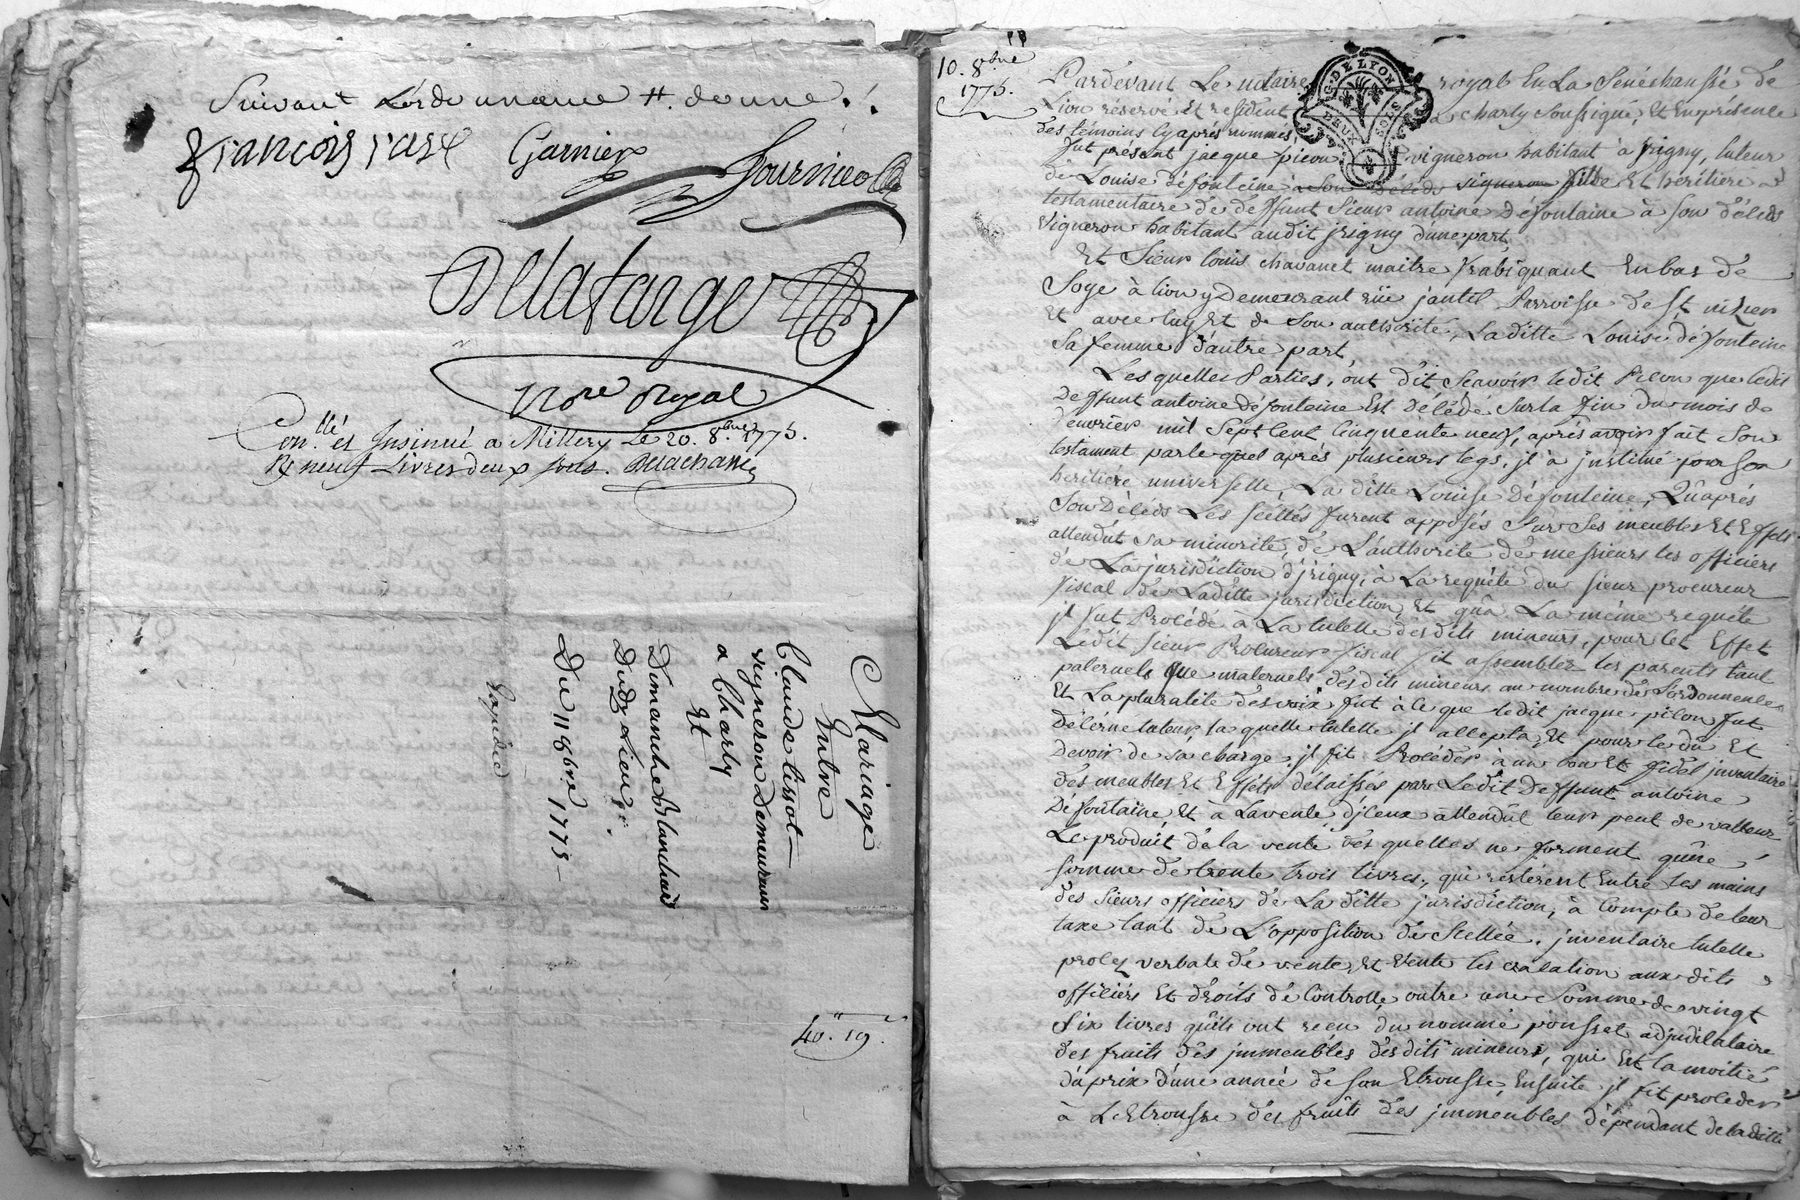 Suivant Lordonnance #. donné ./.
françois vase Garnier fournieolles
Delafarge
Nore Royal
Conllé et Insinué a Millery Le 20. 8.bre 1775.
R neuf Livres deux sous. Delachanie
Mariage
Entre
Claude tissot
vigneron Demeurant
a Charly
Et
Dimanche Blanchard
Dudy Lieu
Du 11 8bre 1775
Expédié
40." 19.
10. 8bre
1775.
G. DE LYON
DEUX SOLS
Pardevant Le notaire royal En La Sénéchaussé de
Lion réservé Et résident a charly soussigné, Et En présence
des témoins cy après nommés
fut présent jacque picou vigneron habitant a jrigny, tuteur
de Louise défonteine a son décéds vigneron fille Et héritière
testamentaire de deffunt sieur antoine défontaine à son décéds
Vigneron habitant audit jrigny d'une part,
Et Sieur louis chavanet maitre frabiquant En bas de
Soye à lion y Demeurant rüe jantil Parroisse de St nizier
Et avec luy Et de Son authorité, La ditte Louise défonteine
Sa femme d'autre part,
Les quelles Parties, ont dit Scavoir ledit Picou que ledit
Deffunt antoine défonteine Est décédé Sur la fin du mois de
feuvrier mil sept cent cinquente neuf, après avoir fait Son
testament par le quel après plusieurs legs, jl à jnstitué pour Son
heritière universelle, La ditte Louise défonteine, Qu'après
Son Décéds Les scéllés furent apposés Sur Ses meubles Et Effets
attendût sa minorité, de L'authorité de messieurs les officiers
de La jurisdiction d'jrigny, à La requête du sieur procureur
fiscal de Laditte jurisdiction, Et qu'a La même requête
jl fut Procédé à La tutelle desdits mineurs, pour cet Effet
Ledit sieur Procureur fiscal fit assembler les parents tant
paternels que maternels desdits mineurs au nombre de L'ordonnence
Et La pluralité des voix fut à ce que ledit jacque picou fut
Décérné tuteur, la quelle tutelle jl accepta, Et pour le dû Et
Devoir de sa charge, jl fit Procéder à un bon Et fidel jnventaire
des meubles Et Effets délaissés par Ledit Deffunt antoine
Défontaine Et à La vente d'jceux attendût leur peut de valleur
Le produit de la vente des quelles ne forment qu'une
somme de trente trois livres, qui restérent Entre les mains
des sieurs officiers de La ditte jurisdiction, à Compte de leur
taxe tant de L'opposition de scellée, jnventaire tutelle
procez verbale de vente, Et vente les vacation aux dits
officiérs Et droits de Controlle, outre une somme de vingt
Six livres qu'ils ont reçu du nommé poussat adjudicataire
des fruits des jmmeubles desdits mineurs, qui Est la moitié
du prix d'une année de son Etrousse, Ensuite jl fit procéder
à L'Etrousse des fruits des jmmeubles dépendant de laditte